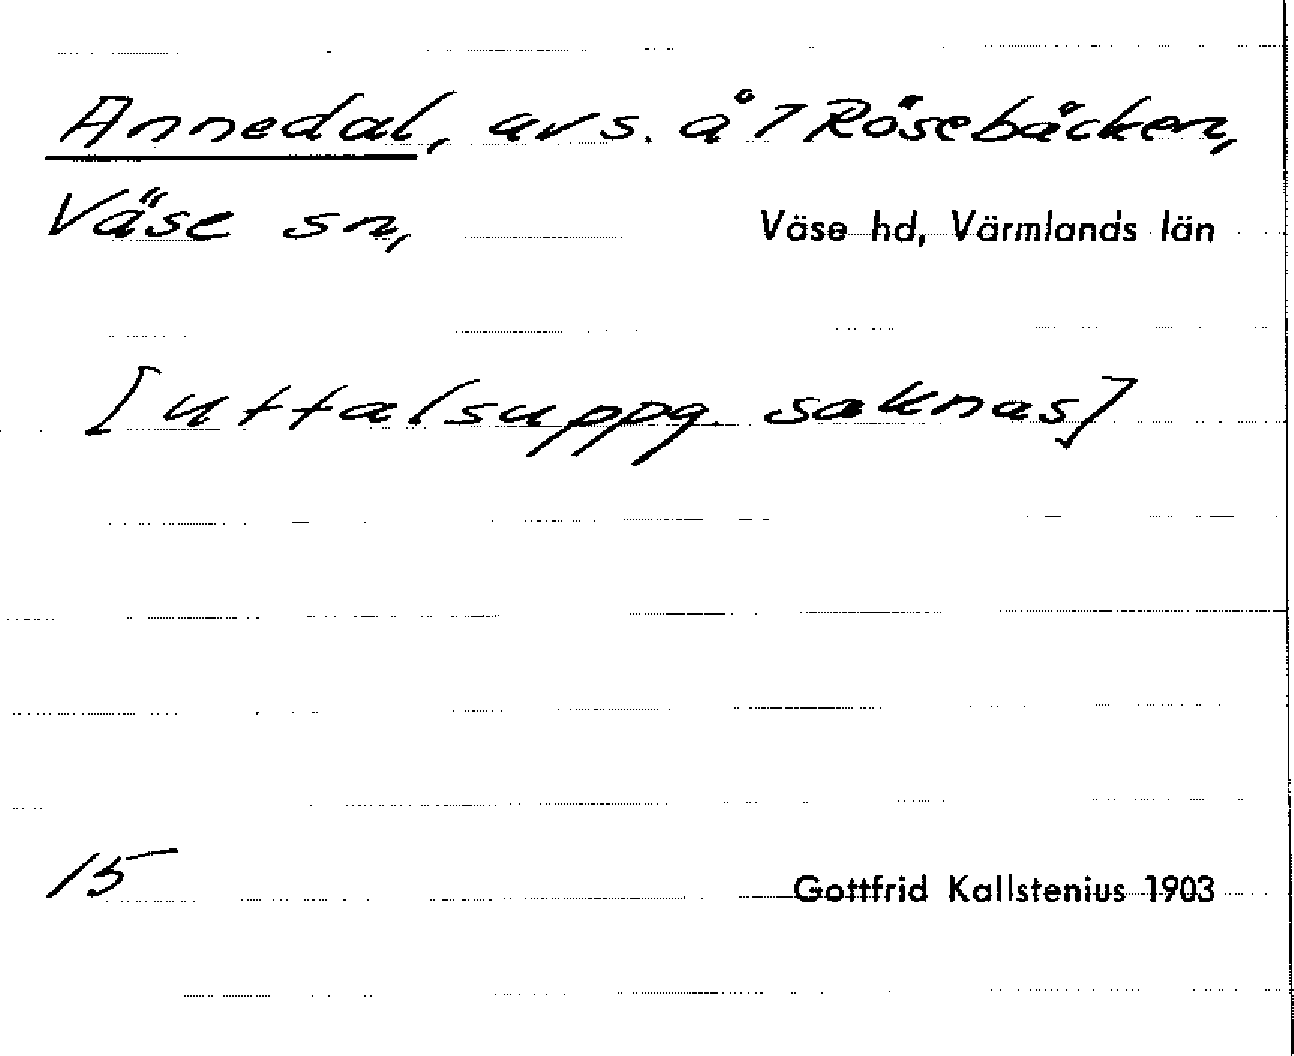 Annedal, avs. å 7 Rösebäcken,
Väse sn, Väse hd, Värmlands län
[uttalsuppg. saknas]
15 Gottfrid Kallstenius 1903